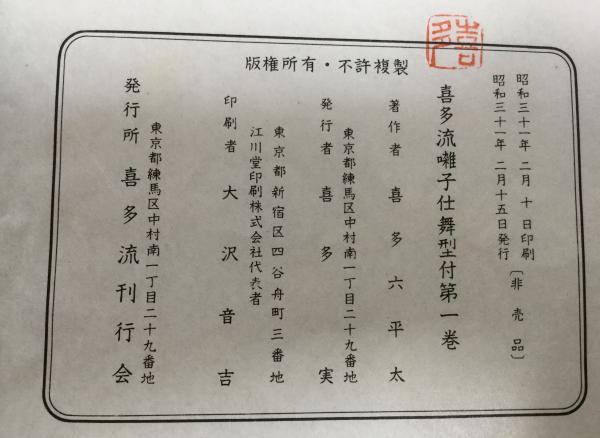 喜多
版権所有・不許複製
昭和三十一年 二月 十 日印刷
昭和三十一年 二月 十五日発行
〔非売品〕
喜多流囃子仕舞型付第一巻
著作者 喜多六平太
東京都練馬区中村南一丁目二十九番地
発行者 喜多実
東京都新宿区四谷舟町三番地
江川堂印刷株式会社代表者
印刷者 大沢音吉
東京都練馬区中村南一丁目二十九番地
発行所 喜多流刊行会